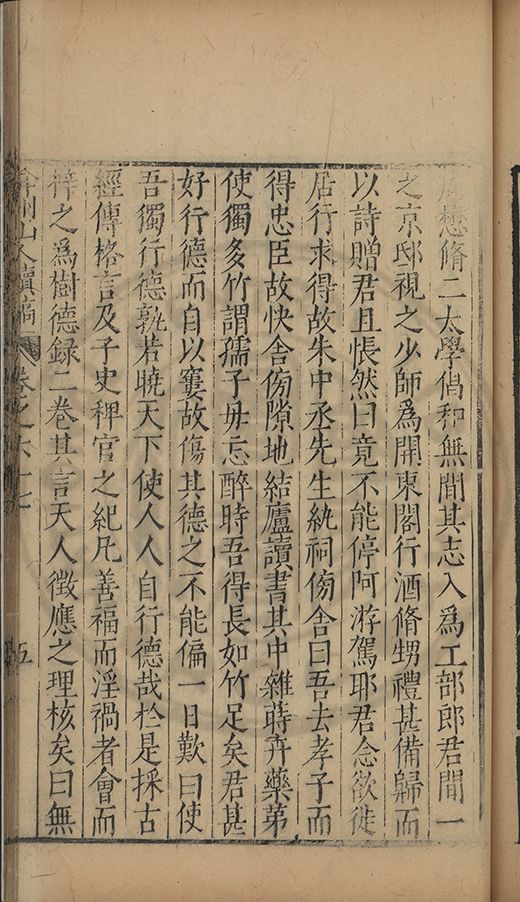 懋脩二太學倡和無間其志入爲工部郎君間一
之京邸視之少師爲開東閣行酒脩甥禮甚備歸而
以詩贈君且悵然曰竟不能停阿游駕耶君念欲徙
居行求得故朱中丞先生純祠傍舍曰吾去孝子而
得忠臣故快舍傍隙地結廬讀書其中雜蒔卉藥苐
使獨多竹謂孺子毋忘醉時吾得長如竹足矣君甚
好行德而自以窶故傷其德之不能徧一日歎曰使
吾獨行德孰若曉天下使人人自行德哉於是採古
經傳格言及子史稗官之紀凡善福而淫禍者會而
梓之爲樹德録二卷其言天人徵應之理核矣曰無
弇州山人續稿 卷之六十七 五